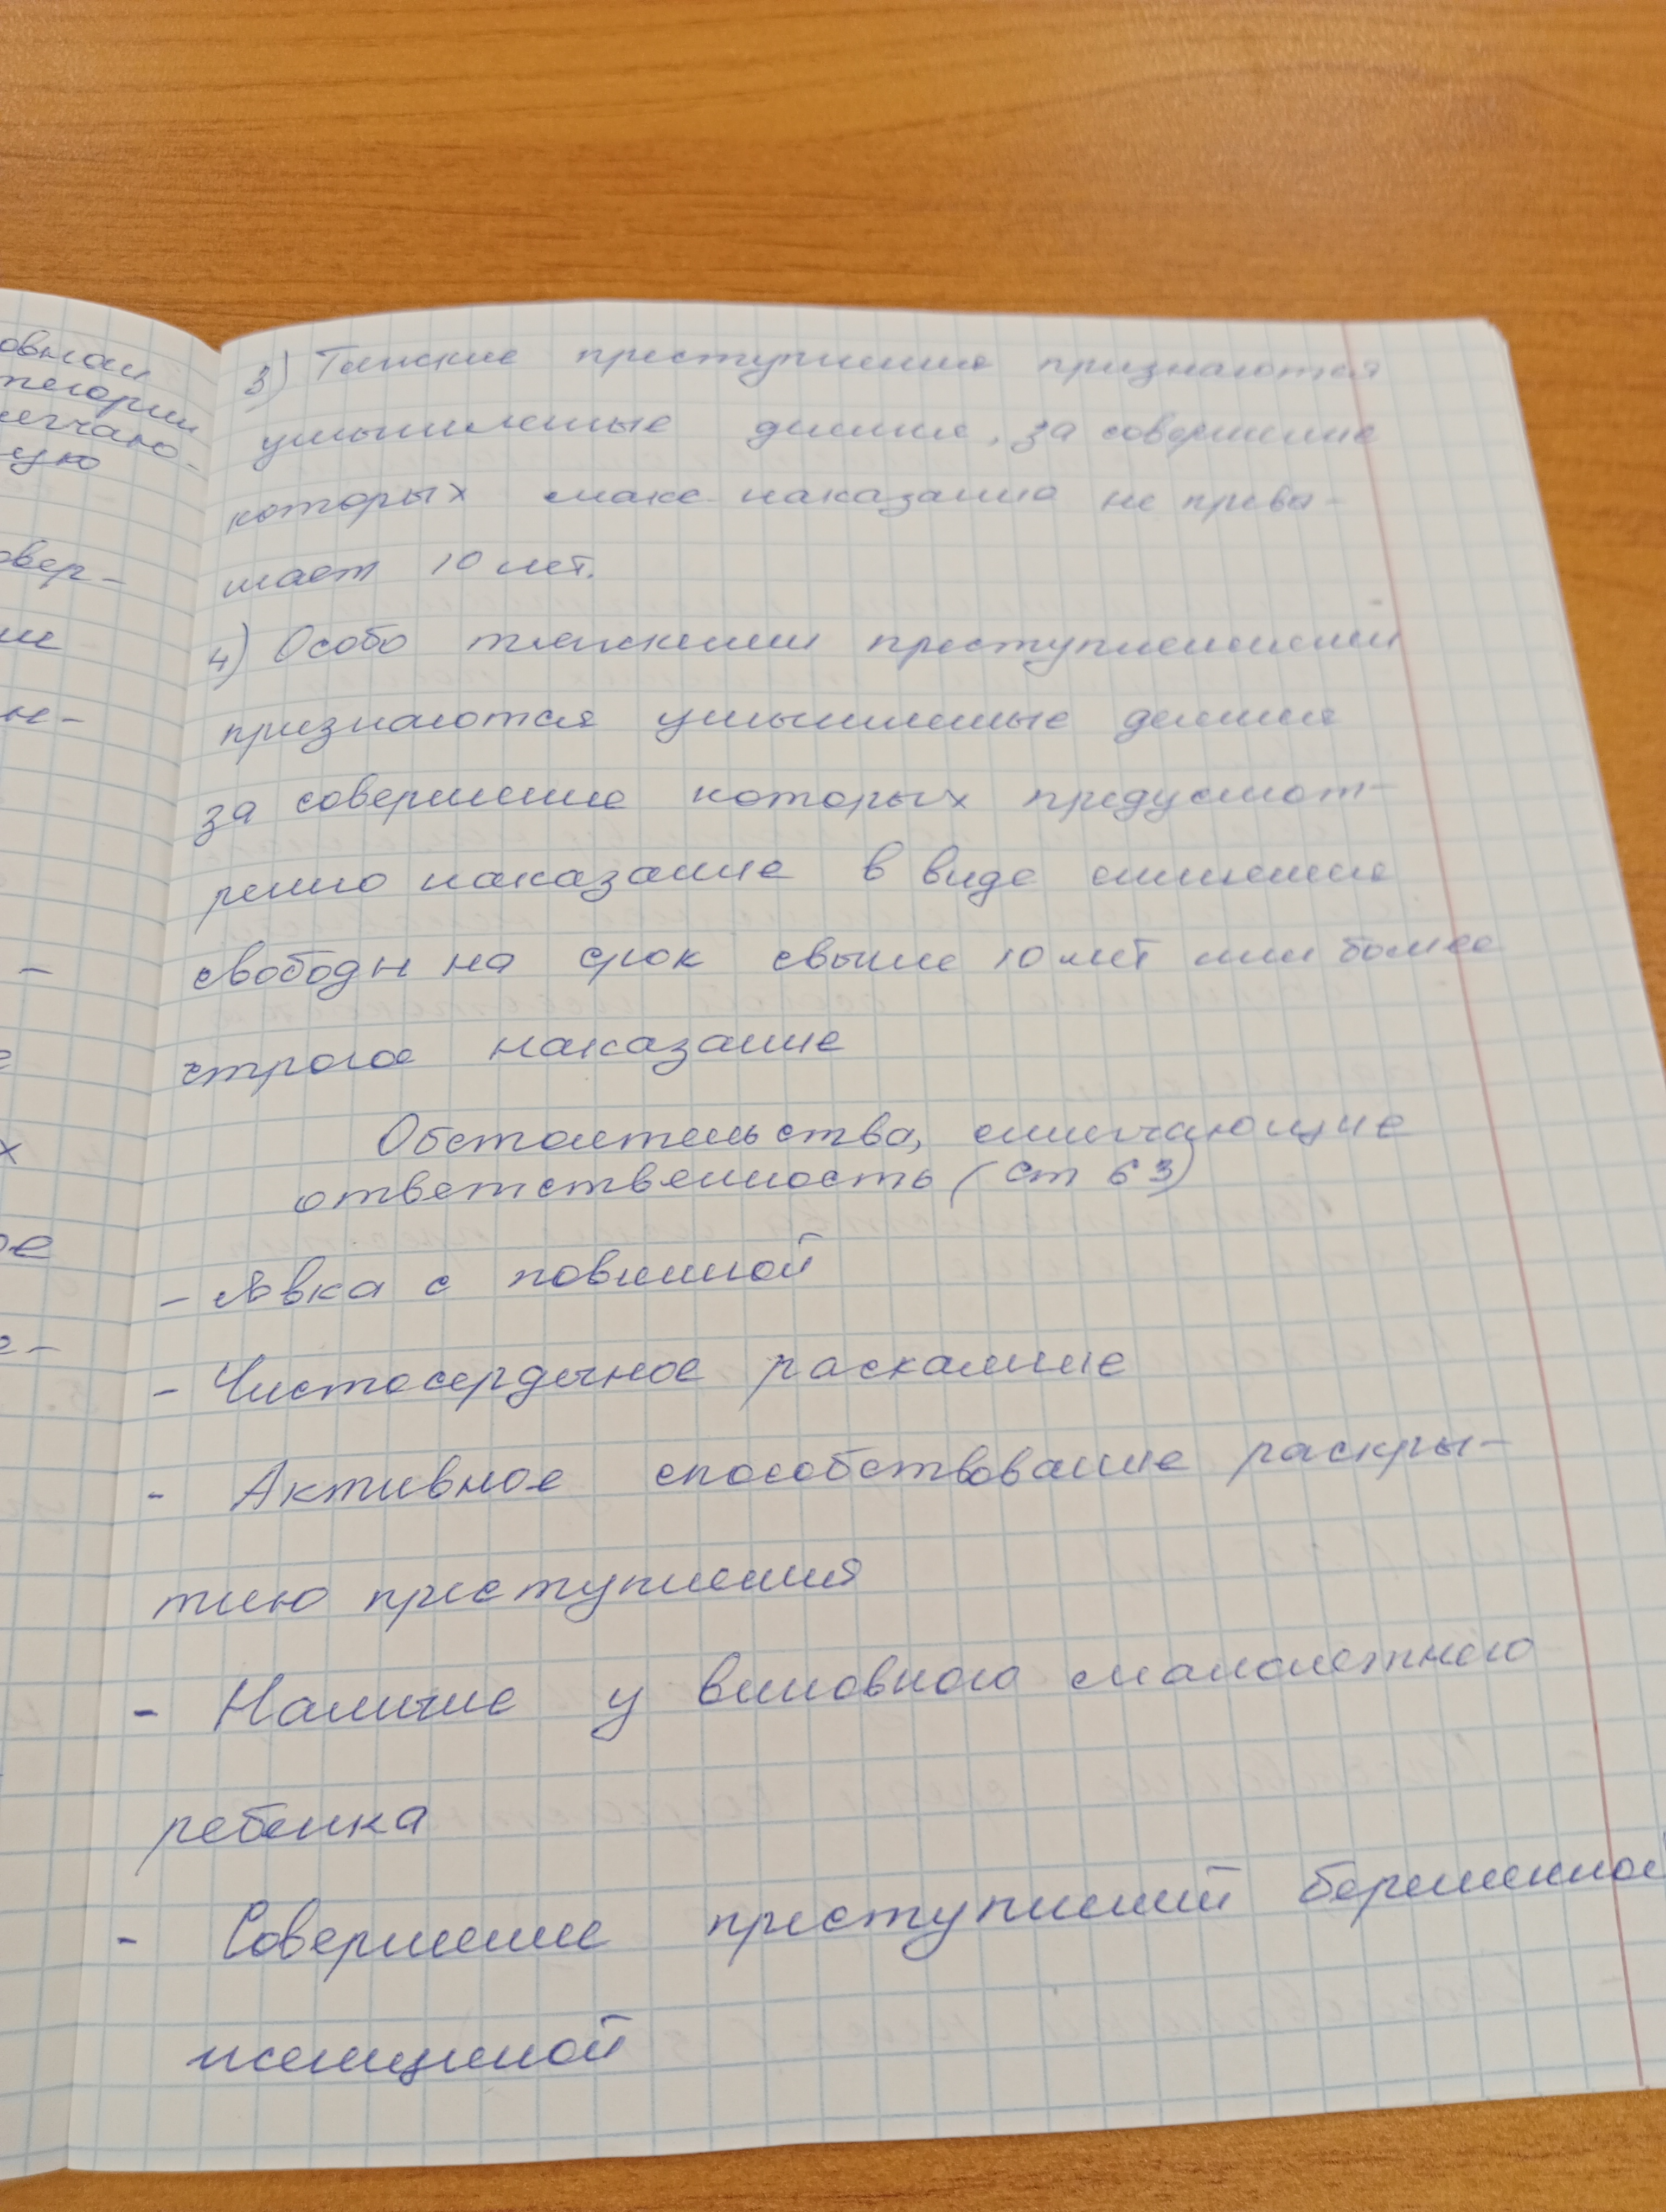 овная
тегории
легчаю-
щую
овер-
ие
не-
-
е
х
ое
е-
3) Тяжкие преступления признаются
умышленные деяния, за совершение
которых макс наказание не превы-
шает 10 лет.
4) Особо тяжкими преступлениями
признаются умышленные деяния
за совершение которых предусмот-
рено наказание в виде лишения
свободы на срок свыше 10 лет или более
строгое наказание
Обстоятельства, смягчающие
ответственность (ст 63)
- Явка с повинной
- Чистосердечное раскаяние
- Активное способствование раскры-
тию преступления
- Наличие у виновного малолетнего
ребенка
- Совершение преступлений беременной
женщиной